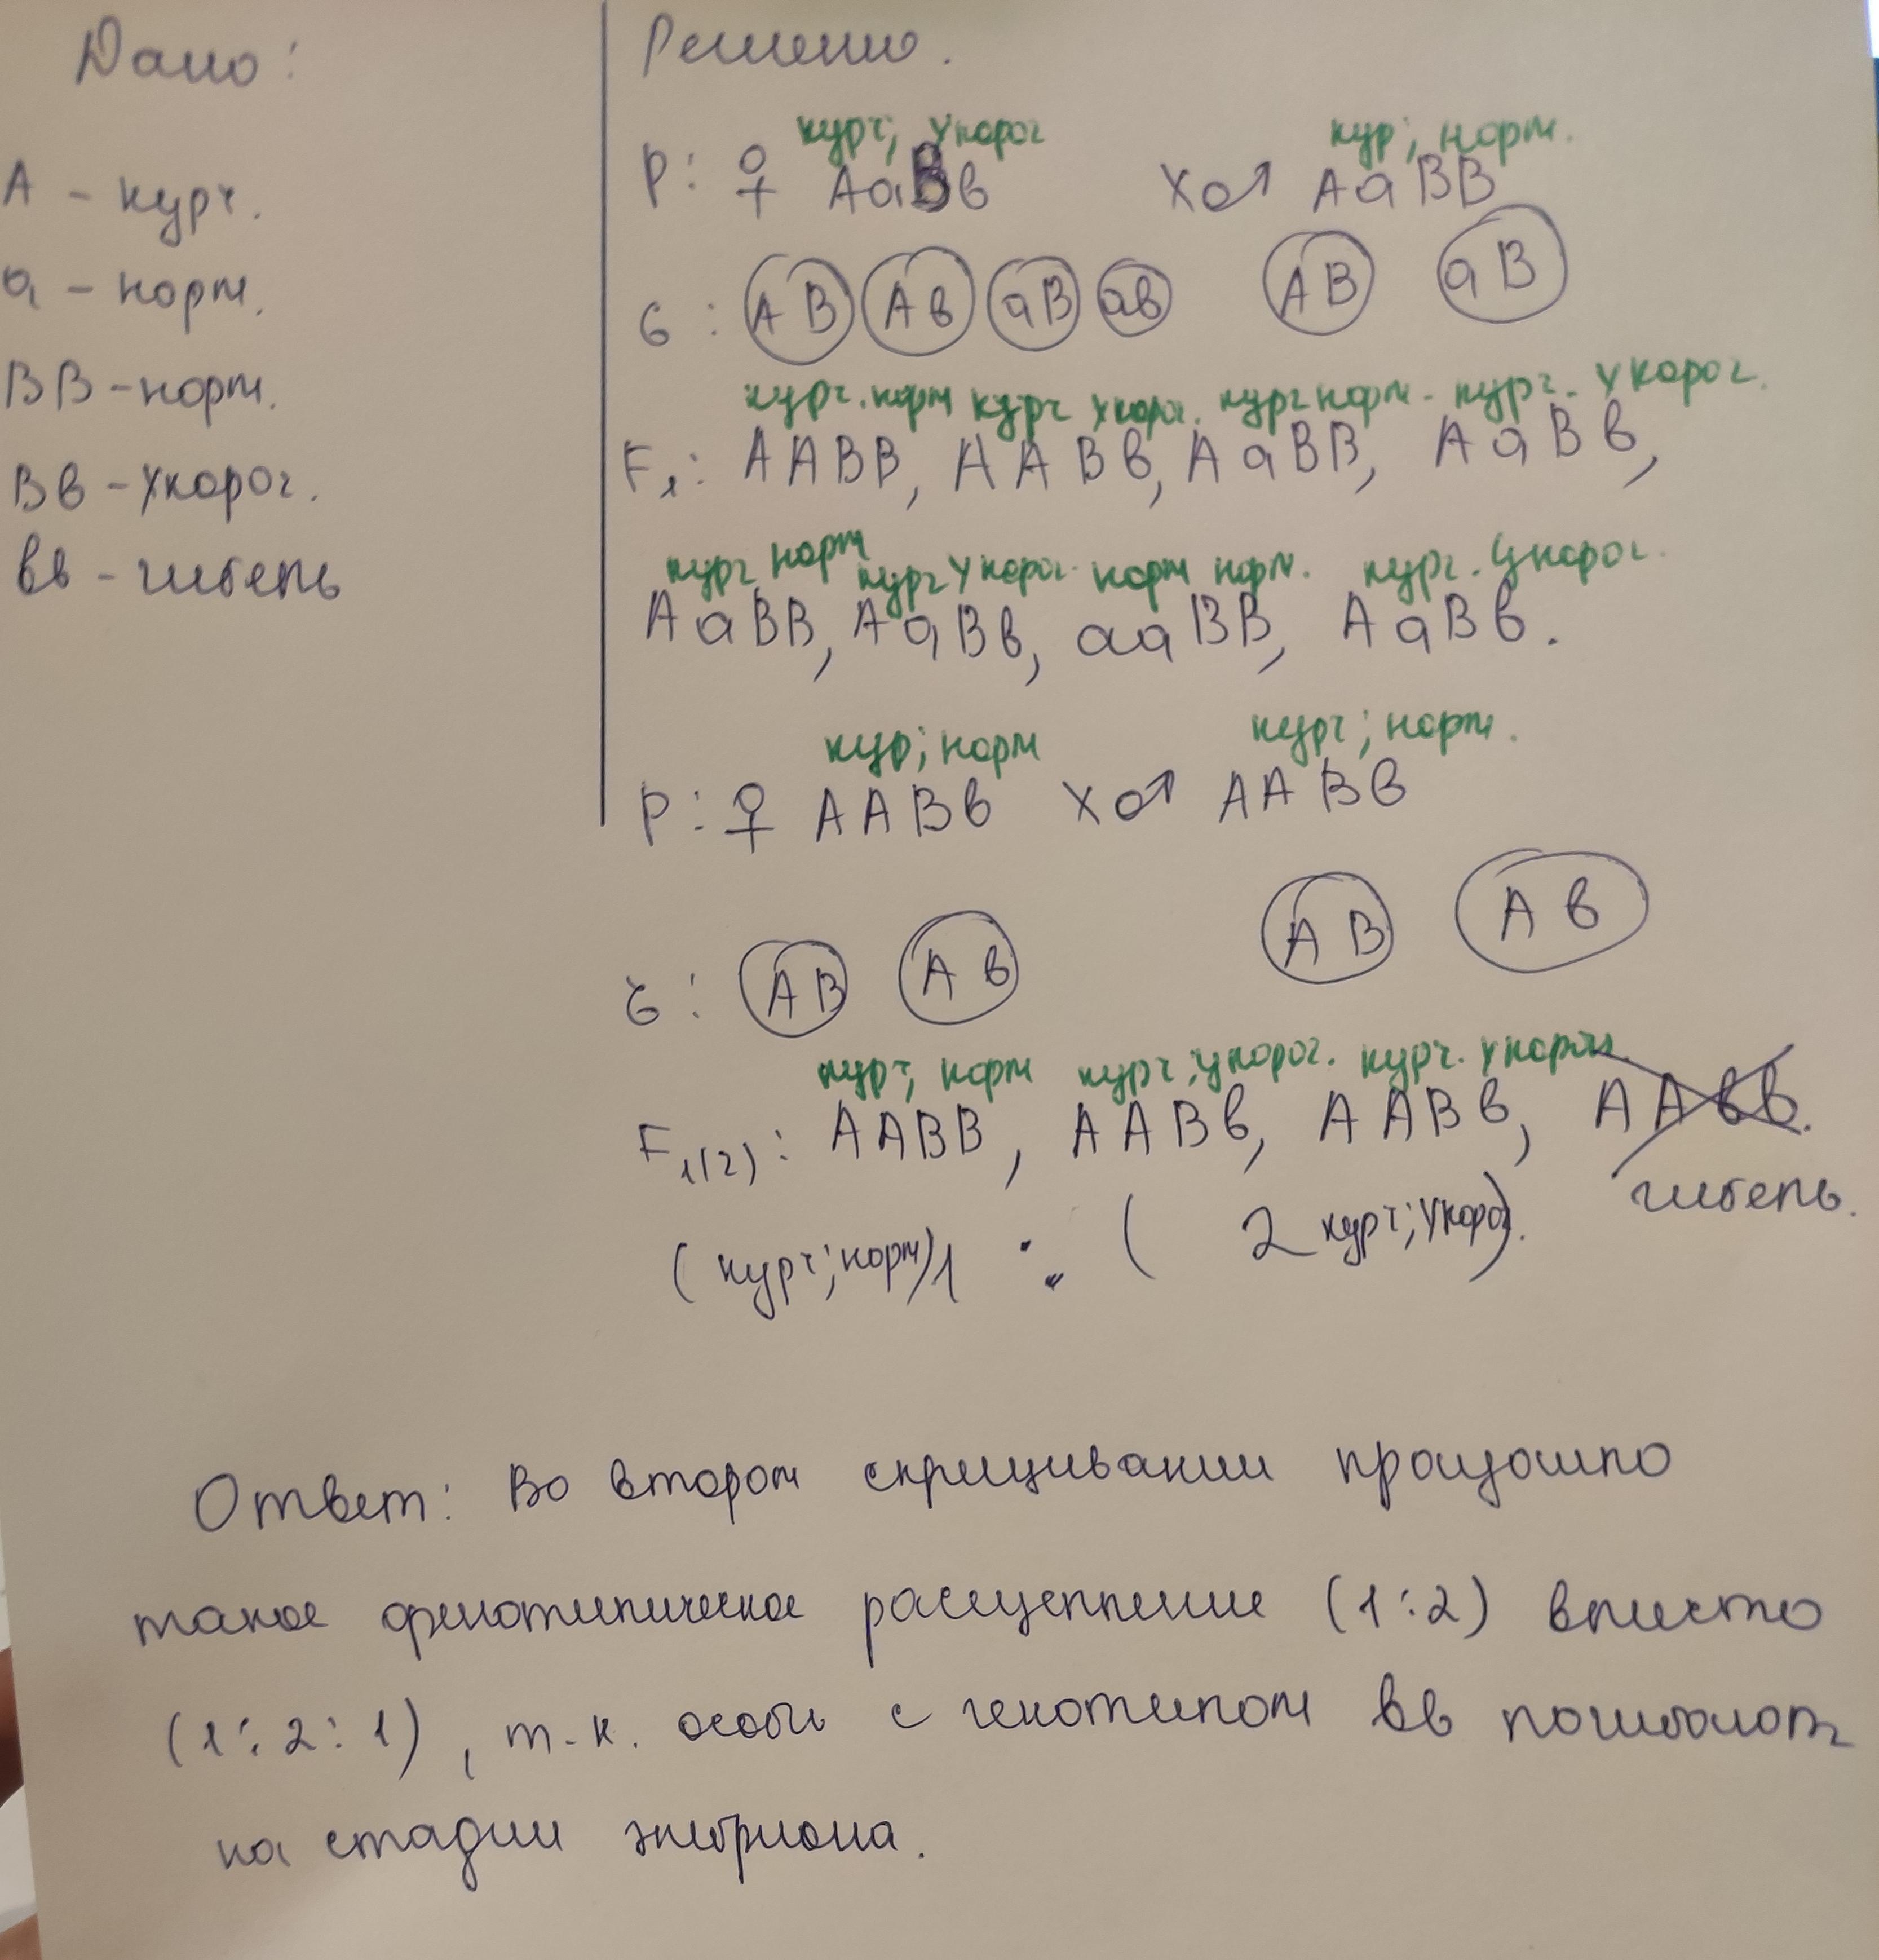 Дано:
А - курч.
а - норм.
ВВ - норм.
Вв - укороч.
вв - гибель
Решение.
курч; укороч
кур; норм.
Р: ♀ АаВв
Х ♂ АаВВ
G: АВ Ав аВ ав АВ аВ
курч. норм курч укороч. курч норм. курч. укороч.
F₁: ААВВ, ААВв, АаВВ, АаВв,
курч норм курч укороч. норм норм. курч. укороч.
АаВВ, АаВв, ааВВ, АаВв.
кур; норм
курч; норм.
Р: ♀ ААВв Х ♂ ААВв
G: АВ Ав АВ Ав
курч, норм курч; укороч. курч. укороч.
F₁₍₂₎: ААВВ, ААВв, ААВв, ААвв.
гибель.
(курч; норм) 1 : ( 2 курч; укороч).
Ответ: Во втором скрещивании произошло
такое фенотипическое расщепление (1:2) вместо
(1:2:1), т-к. особи с генотипом вв погибают
на стадии эмбриона.